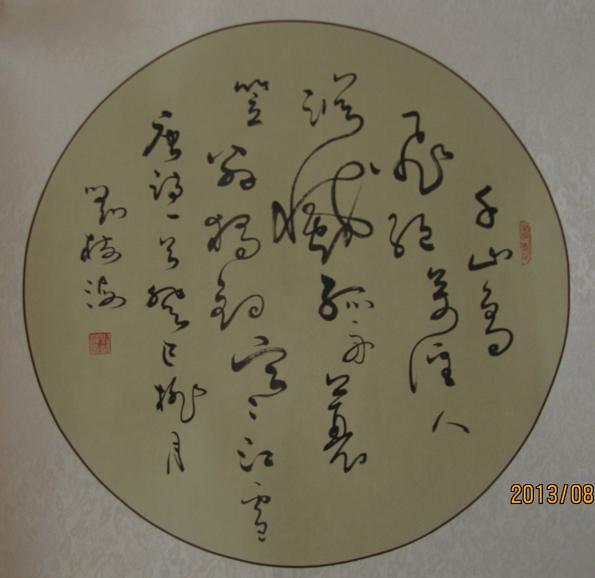 千山鳥
飛絕萬徑人
蹤滅孤舟蓑
笠翁獨釣寒江雪
唐詩一首癸巳桃月
劉樹海
2013/08